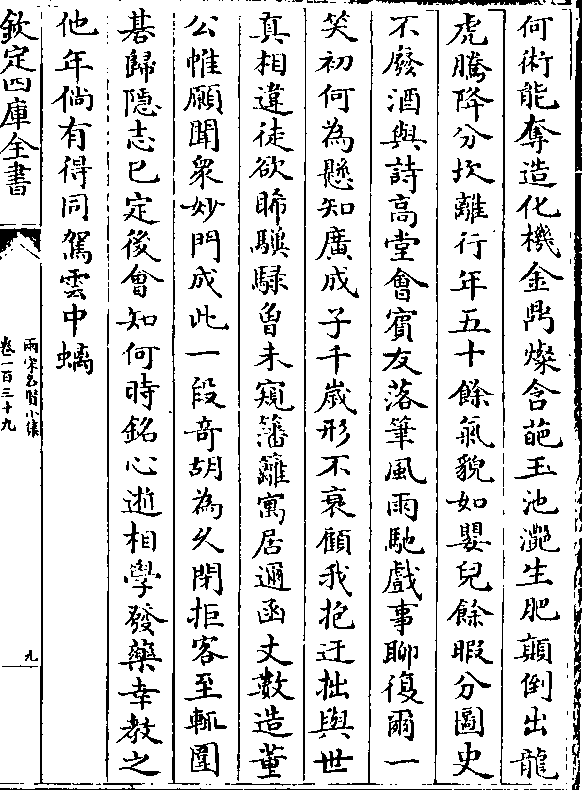 何術能奪造化機金鼎燦含葩玉池灔生肥顛倒出龍
虎騰降分坎離行年五十餘氣貌如嬰兒餘暇分圖史
不廢酒與詩高堂會賓友落筆風雨馳戲事聊復爾一
笑初何為懸知廣成子千歳形不衰顧我抱迂拙與世
真相違徒欲睎驥騄魯未窺籓籬寓居邇函丈數造董
公帷願聞衆妙門成此一段竒胡為乆閉拒客至輒圍
碁歸隱志已定後會知何時銘心逝相學發藥幸教之
他年倘有得同駕雲中螭
欽定四庫全書
兩宋名賢小集
卷一百三十九
九